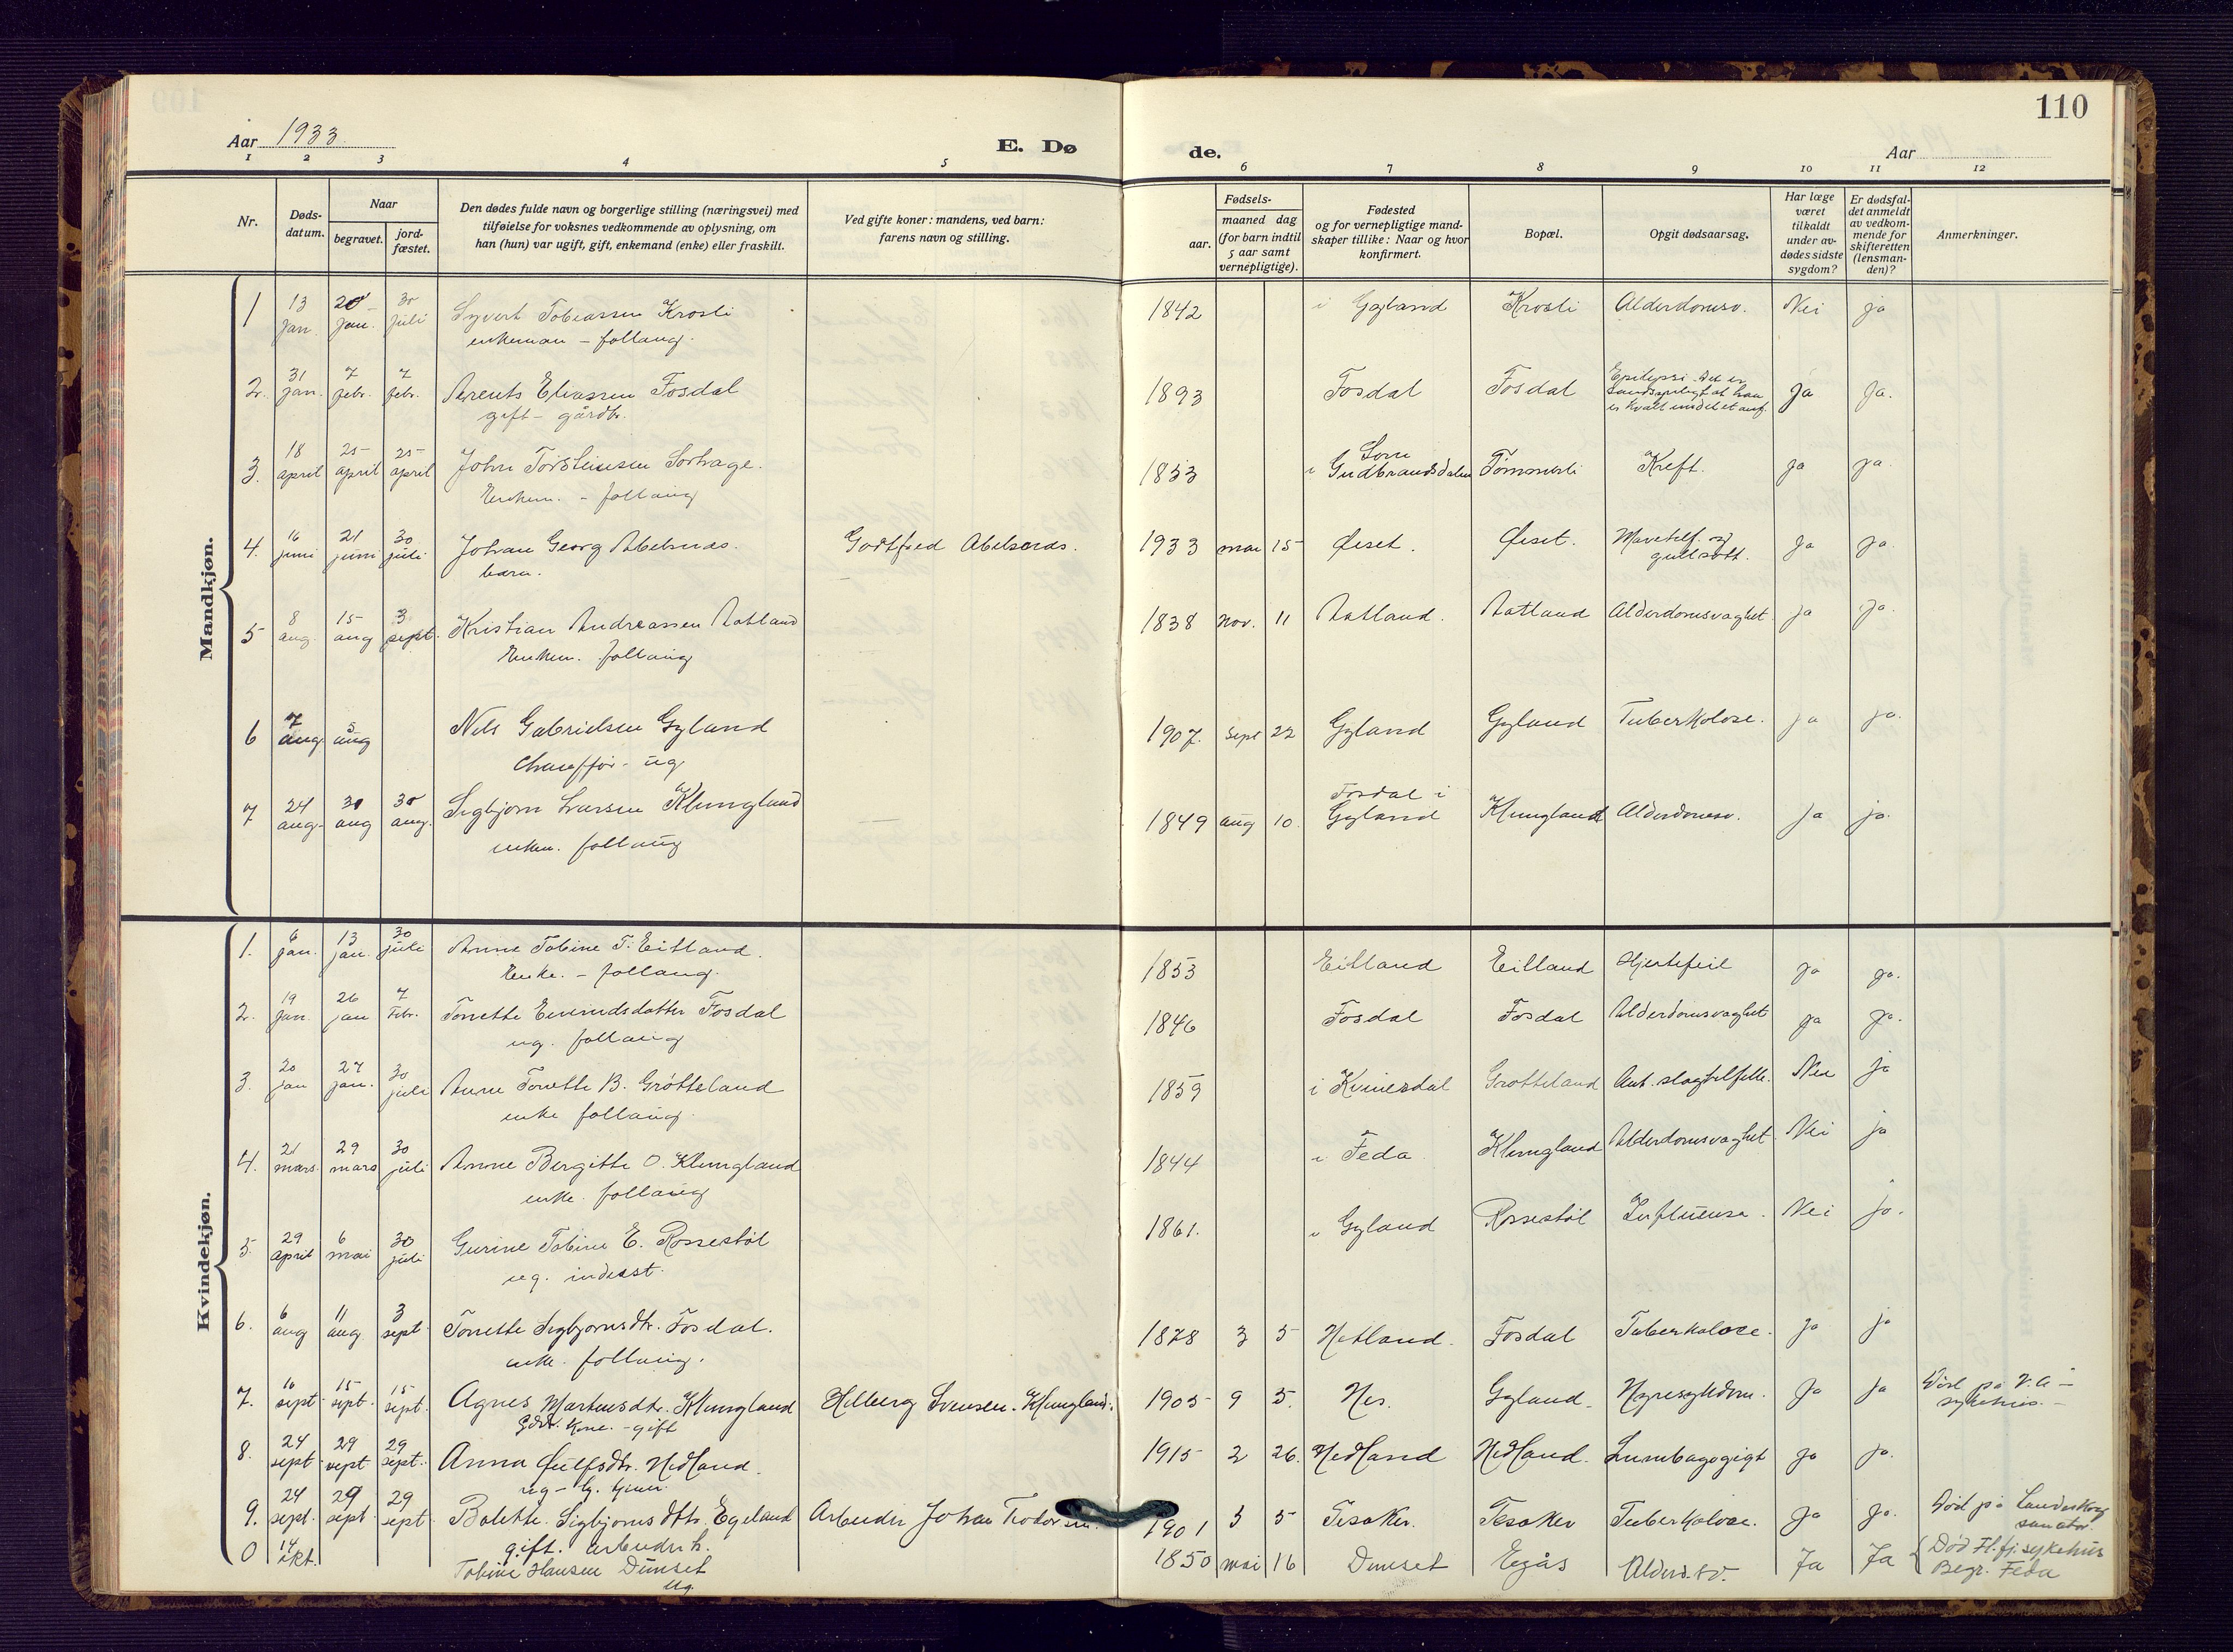 110
Aar 1933
E. Dø
de.
Aar
1 2 3 4 5 6 7 8 9 10 11 12
Nr.
Døds-
datum.
Naar
begravet.
jord-
fæstet.
Den dødes fulde navn og borgerlige stilling (næringsvei) med
tilføielse for voksnes vedkommende av oplysning, om
han (hun) var ugift, gift, enkemand (enke) eller fraskilt.
Ved gifte koner: mandens, ved barn:
farens navn og stilling.
Fødsels-
aar.
maaned dag
(for barn indtil
5 aar samt
vernepligtige).
Fødested
og for vernepligtige mand-
skaper tillike: Naar og hvor
konfirmert.
Bopæl.
Opgit dødsaarsag.
Har læge
været
tilkaldt
under av-
dødes sidste
sygdom?
Er dødsfal-
det anmeldt
av vedkom-
mende for
skifteretten
(lensman-
den)?
Anmerkninger.
Mandkjøn.
1 13 jan. 20 jan. 30 juli Syvert Tobiassen Krosli 1842 i Gyland Krosli Alderdomsv. Nei ja
enkeman - follaug.
2. 31 jan. 7 febr. 7 febr. Arents Eliassen Fosdal 1893 Fosdal Fosdal Epilepsi. Det er
sandsynligt at han
er kvalt under et anf. Ja Ja.
gift - gårdbr.
3. 18 april 25 april 25 april John Torsteinsen Sortrage. 1853 i Lom
Gudbrandsdalen Tømmerli Kreft. ja ja.
Enkem. - follaug
4. 16 juni 21 juni 30 juli Johan Georg Abelsnes. Godtfred Abelsnes. 1933 mai 15 Øiset. Øiset. Mavetilf. og
gullsott. Ja ja.
barn.
5 8 aug. 15 aug 3 sept. Kristian Andreassen Aatland 1838 Nov. 11 Aatland. Aatland Alderdomsvaghet. ja ja.
Enkem. follaug
6 7 aug. 5 aug Nils Gabrielsen Gyland 1907. Sept 22 Gyland Gyland Tuberkolose. ja ja.
Chauffør - ug.
7 24 aug. 30 aug 30 aug. Sigbjørn Larsen Klungland 1849 aug 10 Fosdal i
Gyland Klungland Alderdomsv. Ja ja.
enkem. follaug
Kvindekjøn.
1. 6 jan. 13 jan. 30 juli Anne Tobine T. Eitland. 1853 Eitland Eitland Hjertefeil ja ja.
Enke. - follaug.
2. 19 jan. 26 jan 7 Febr. Tonette Eivindsdatter Fosdal 1846 Fosdal Fosdal Alderdomsvaghet ja ja.
ug. follaug
3. 20 jan 27 jan. 30 juli Anne Tonette B. Grøtteland 1859 i Kvinesdal Grøtteland Ant. slagtilfelle. Nei ja
enke follaug.
4. 21 mars. 29 mars 30 juli Anne Bergitte O. Klungland 1844 i Feda Klungland Alderdomsvaghet. Nei ja
enke. follaug
5. 29 april 6 mai 30 juli Gurine Tobine E. Rossestøl 1861. i Gyland Rossestøl Influensa. Nei ja.
ug. inderst.
6. 6 aug 11 aug. 3 sept. Tonette Sigbjørnsdtr. Fosdal. 1878 3 5 Netland. Fosdal Tuberkolose. ja ja
enke. follaug.
7. 16 sept. 15 sept. 15 sept. Agnes Martinsdtr. Klungland Helberg Svensen. Klungland. 1905 9 5. Nes. Gyland. Nyresykdom. Ja ja Død på V.A -
sykehus. -
Gdbr. kone. - gift
8. 24 sept. 29 sept 29 sept. Anna Gulfsdtr. Nedland. 1915 2 26. Nedland Nedland. Lumbagogigt Ja ja.
ug -
9. 24 sept. 29 sept 29 sept. Bolette Sigbjørnsdtr. Egeland Arbeider Johan Teodorsen. 1901 3 5 Tesaker. Tesaker Tuberkolose. Ja Ja. Død på Landeskog
sanator.
gift. arbeiderh.
0 14 okt. Tobine Hansen Dunset 1850 mai 16 Dunset Egås Alderd.sv. Ja Ja Død Fl.fj. sykehus
Begr. Feda
ug.